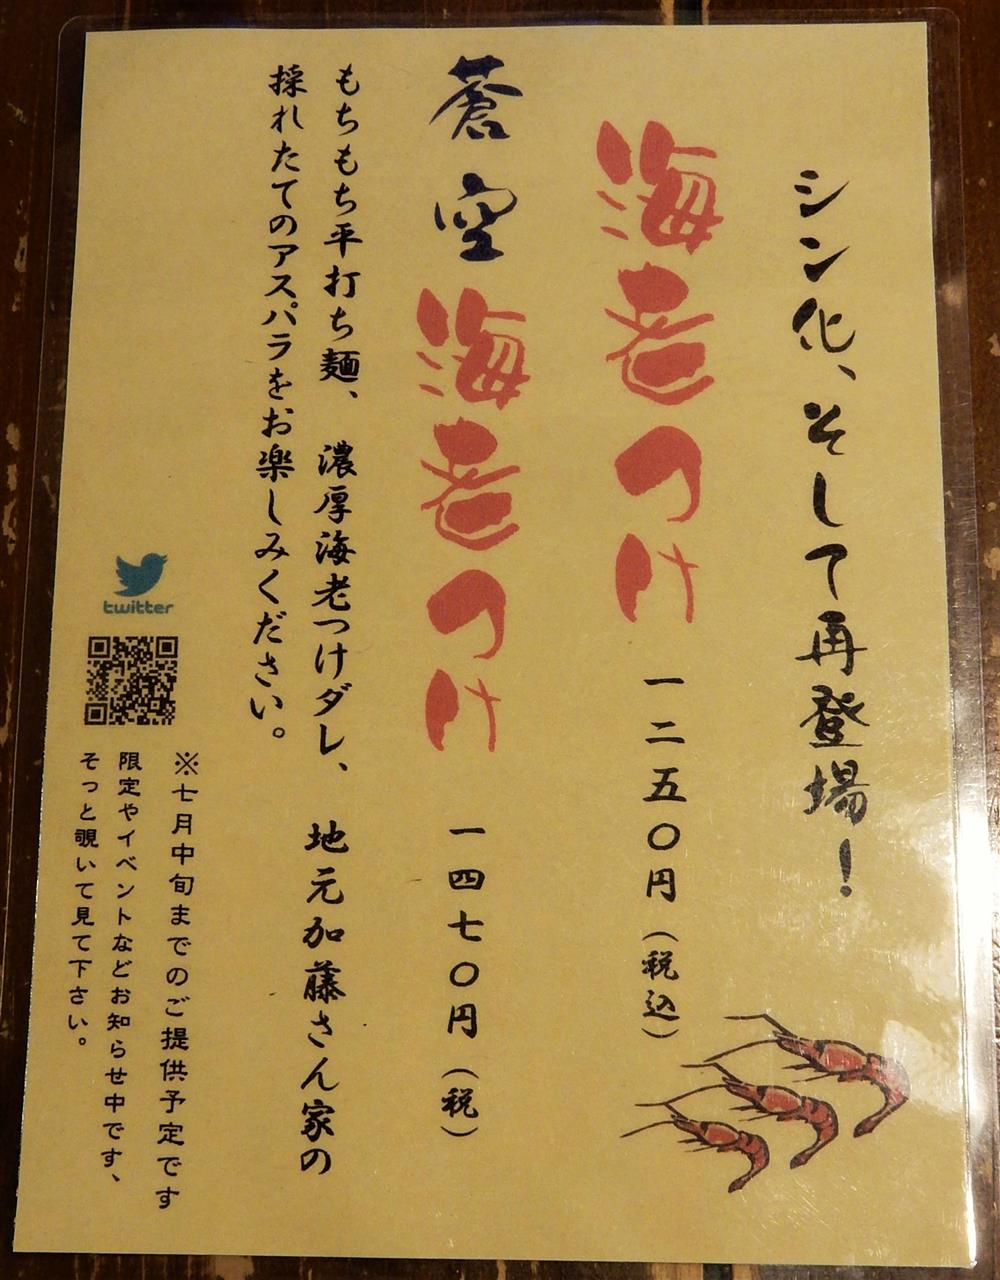 シン化、そして再登場！
海老つけ 一二五〇円（税込）
蒼空海老つけ 一四七〇円（税）
もちもち平打ち麺、濃厚海老つけダレ、地元加藤さん家の
採れたてのアスパラをお楽しみください。
※七月中旬までのご提供予定です
限定やイベントなどお知らせ中です、
そっと覗いて見て下さい。
twitter